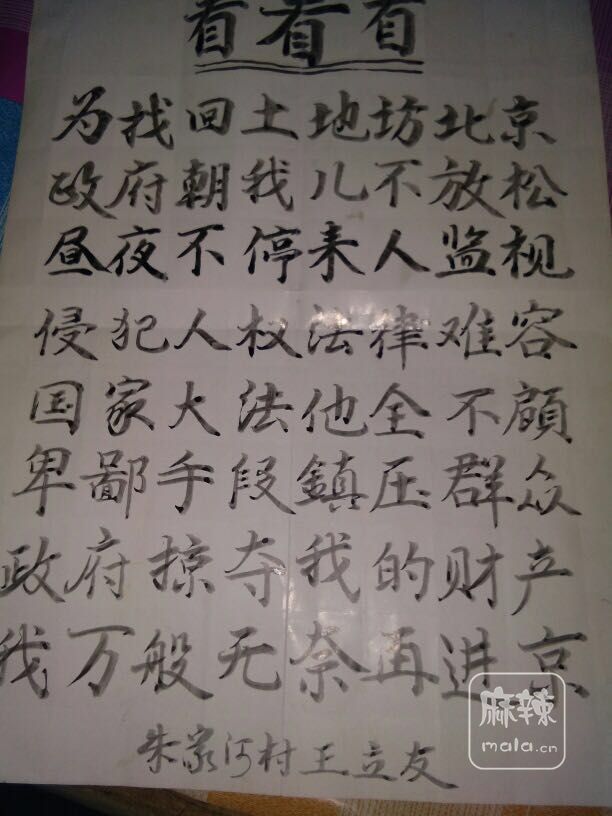 看看看
为找回土地坊北京
政府朝我儿不放松
昼夜不停来人监视
侵犯人权法律难容
国家大法他全不顧
卑鄙手段鎮压群众
政府掠夺我的财产
我万般无奈再进京
朱家河村王立友
麻辣
mala.cn